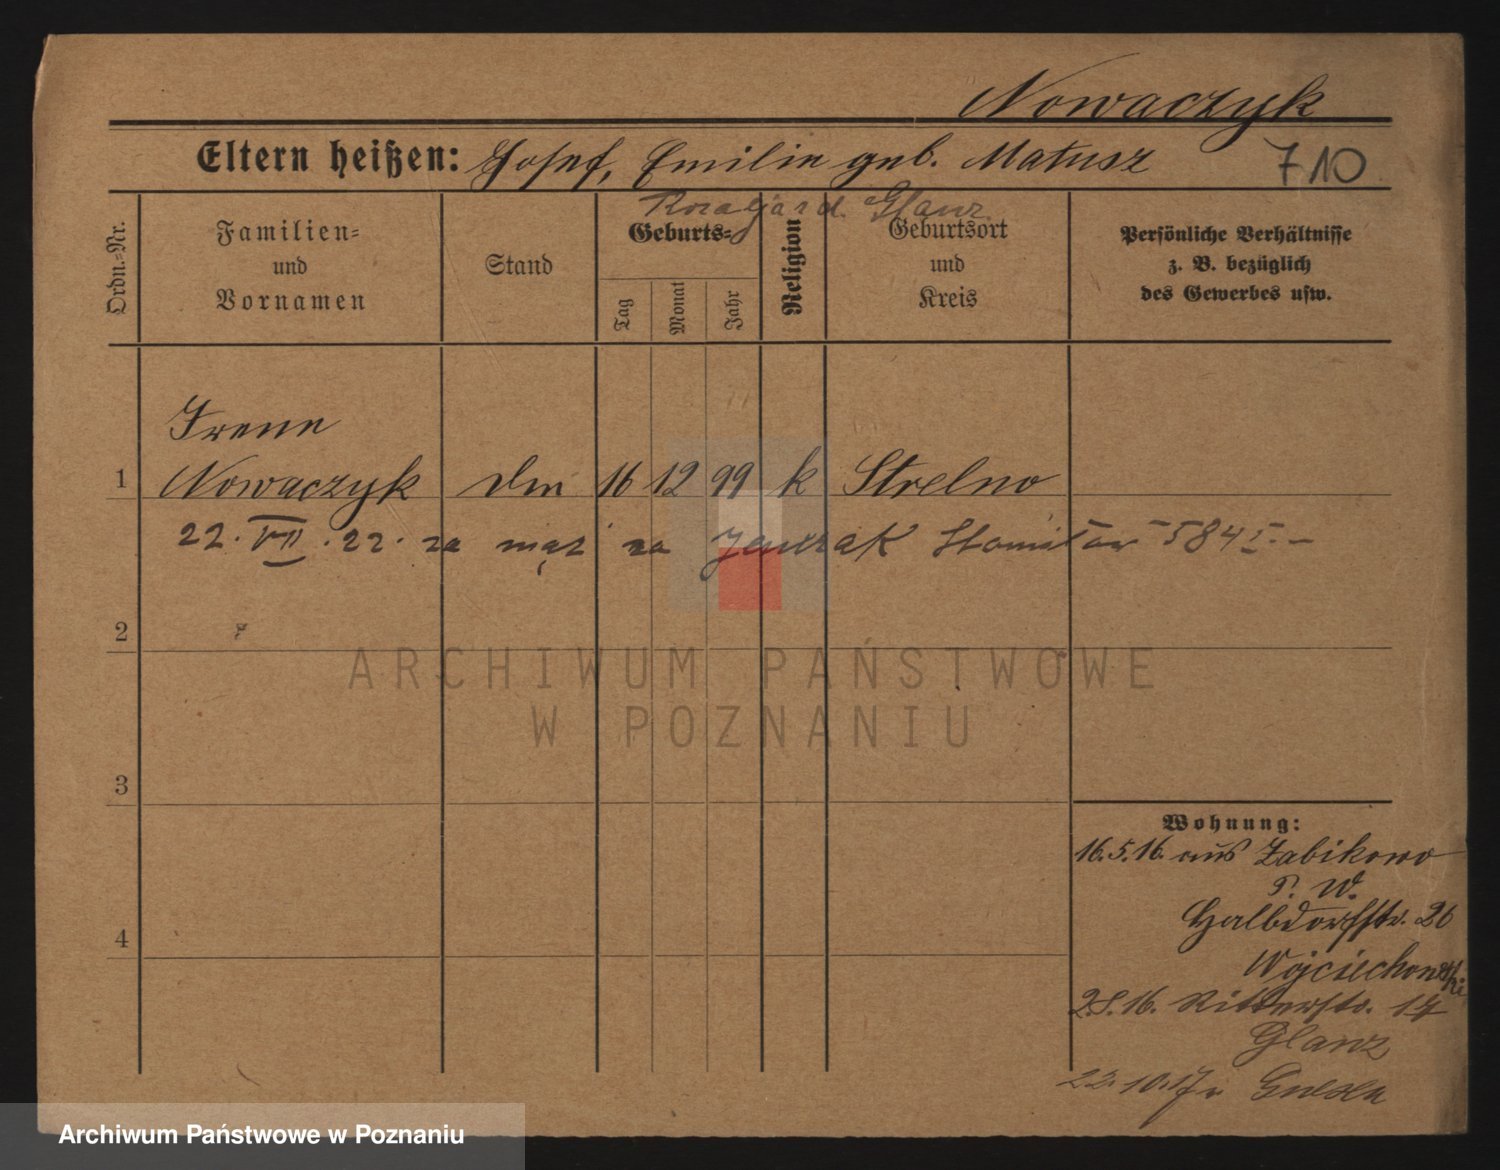 Nowaczyk
Eltern heißen: Josef, Emilie geb. Matusz
710
Glanz
Ordn.-Nr.
Familien-
und
Vornamen
Stand
Geburts-
Tag
Monat
Jahr
Religion
Geburtsort
und
Kreis
Persönliche Verhältnisse
z. B. bezüglich
des Gewerbes usw.
Irene
1 Nowaczyk 16 12 99 k Strelno
22. VII. 22. za mąż za Stanisław
2
3
4
Wohnung:
16.5.16. aus Zabikowo
P. W.
Halbdorfstr. 26
Wojciechowski
16. Ritterstr. 14
Glanz
22.10.17
ARCHIWUM PAŃSTWOWE
W POZNANIU
Archiwum Państwowe w Poznaniu